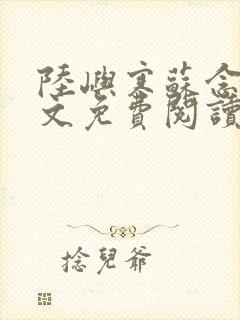 陸嶼寒蘇念
文免費閱讀
捻兒爺